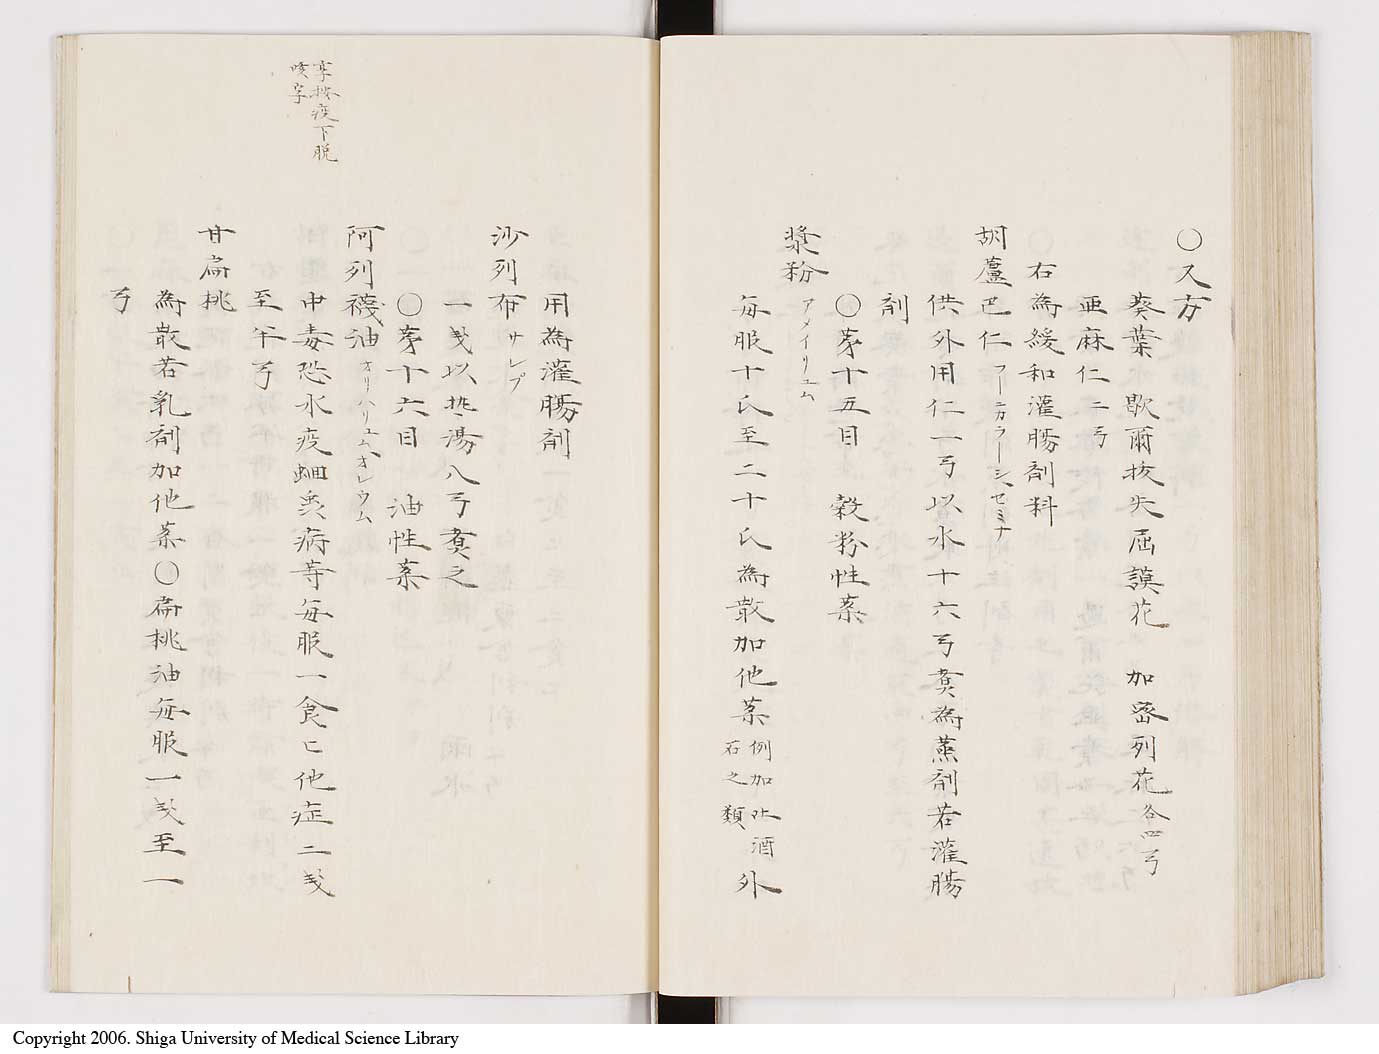 〇又方
葵葉 歇爾抜失屈謨花 加密列花各四弓
亜麻仁二弓
右為緩和灌腸剤料
胡蘆巴仁 フーニカラーシ、セミナ
供外用仁一弓以水十六弓煑為蒸剤若灌腸
剤
〇第十五目 穀粉性薬
漿粉 アメイリュム
毎服十氏至二十氏為散加他薬 例加 酒
石之類 外
用為灌腸剤
沙列布 サレプ
一戔以热湯八弓煑之
〇第十六目 油性薬
阿列襪油 オリハリュム、オレウム
中毒恐水疫蛔 病等毎服一食匕他症二戔
至半弓
甘扁桃
為散若乳剤加他薬〇扁桃油毎服一戔至一
弓
字按疫下脱
咳字
Copyright 2006. Shiga University of Medical Science Library